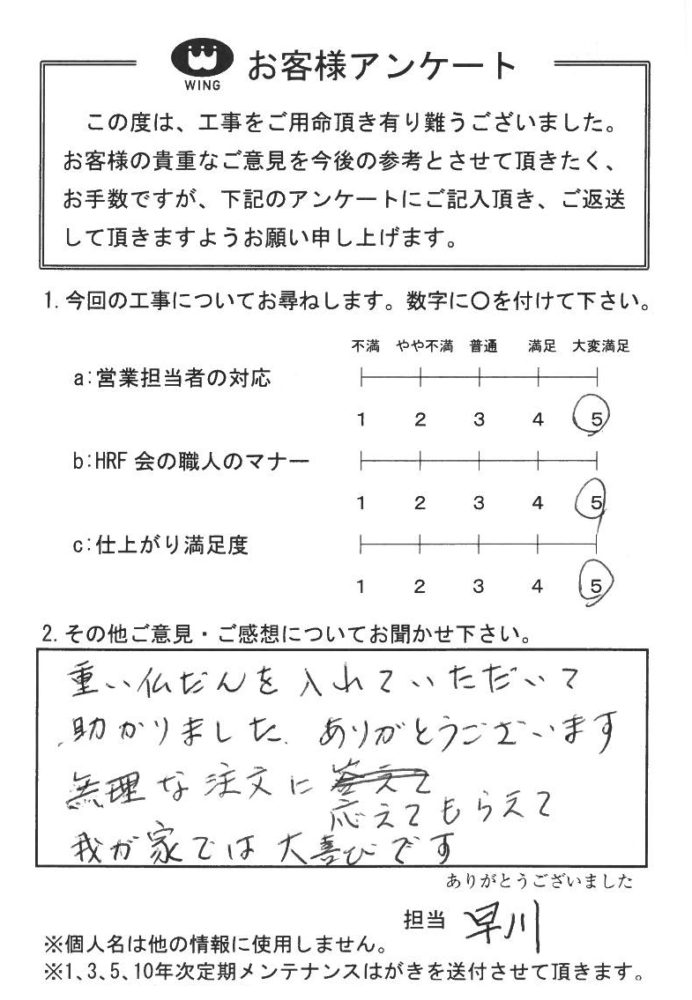 WING
お客様アンケート
この度は、工事をご用命頂き有り難うございました。
お客様の貴重なご意見を今後の参考とさせて頂きたく、
お手数ですが、下記のアンケートにご記入頂き、ご返送
して頂きますようお願い申し上げます。
1. 今回の工事についてお尋ねします。数字に○を付けて下さい。
不満 やや不満 普通 満足 大変満足
a:営業担当者の対応
1 2 3 4 5
b:HRF会の職人のマナー
1 2 3 4 5
c:仕上がり満足度
1 2 3 4 5
2. その他ご意見・ご感想についてお聞かせ下さい。
重い仏だんを入れていただいて
助かりました。ありがとうございます
無理な注文に答えて
応えてもらえて
我が家では大喜びです
ありがとうございました
担当 早川
※個人名は他の情報に使用しません。
※1、3、5、10年次定期メンテナンスはがきを送付させて頂きます。